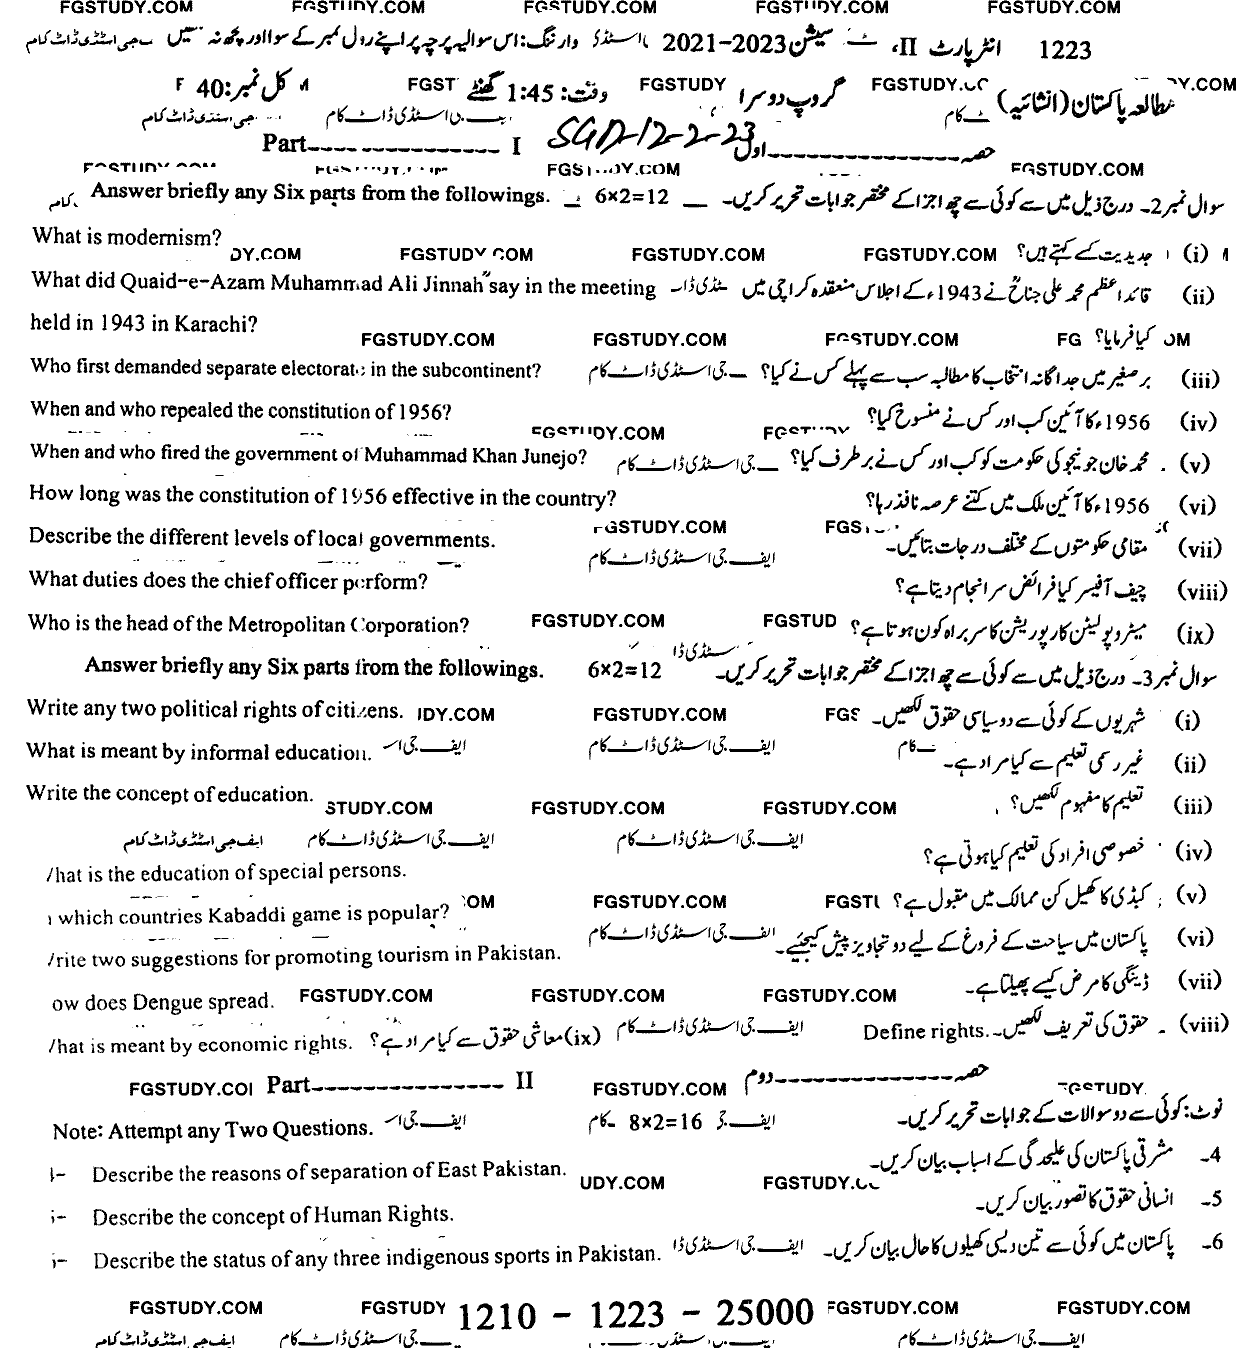 FGSTUDY.COM FGSTUDY.COM FGSTUDY.COM FGSTUDY.COM FGSTUDY.COM
1223 انٹر پارٹ II، سیشن 2023–2021 وارننگ: اس سوالیہ پرچہ پر اپنے رول نمبر کے سوا اور کچھ نہ
مطالعہ پاکستان (انشائیہ) گروپ دوسرا وقت: 1:45 گھنٹے کل نمبر: 40
FGSTUDY
حصہ اول SGD-12-2-23 Part I
FGSTUDY.COM
سوال نمبر 2۔ درج ذیل میں سے کوئی سے چھ اجزا کے مختصر جوابات تحریر کریں۔ 6×2=12 Answer briefly any Six parts from the followings.
(i) جدیدیت کسے کہتے ہیں؟ What is modernism?
FGSTUDY.COM FGSTUDY.COM
(ii) قائداعظم محمد علی جناحؒ نے 1943ء کے اجلاس منعقدہ کراچی میں What did Quaid-e-Azam Muhammad Ali Jinnah say in the meeting
کیا فرمایا؟ held in 1943 in Karachi?
FGSTUDY.COM FGSTUDY.COM FGSTUDY.COM
(iii) برصغیر میں جداگانہ انتخاب کا مطالبہ سب سے پہلے کس نے کیا؟ Who first demanded separate electorate in the subcontinent?
(iv) 1956ء کا آئین کب اور کس نے منسوخ کیا؟ When and who repealed the constitution of 1956?
FGSTUDY.COM
(v) محمد خان جونیجو کی حکومت کو کب اور کس نے برطرف کیا؟ When and who fired the government of Muhammad Khan Junejo?
(vi) 1956ء کا آئین ملک میں کتنے عرصہ نافذ رہا؟ How long was the constitution of 1956 effective in the country?
FGSTUDY.COM
(vii) مقامی حکومتوں کے مختلف درجات بتائیں۔ Describe the different levels of local governments.
ایف جی اسٹڈی ڈاٹ کام
(viii) چیف آفیسر کیا فرائض سرانجام دیتا ہے؟ What duties does the chief officer perform?
(ix) میٹروپولیٹن کارپوریشن کا سربراہ کون ہوتا ہے؟ FGSTUD FGSTUDY.COM Who is the head of the Metropolitan Corporation?
سوال نمبر 3۔ درج ذیل میں سے کوئی سے چھ اجزا کے مختصر جوابات تحریر کریں۔ 6×2=12 Answer briefly any Six parts from the followings.
(i) شہریوں کے کوئی سے دو سیاسی حقوق لکھیں۔ FGSTUDY.COM Write any two political rights of citizens.
(ii) غیر رسمی تعلیم سے کیا مراد ہے۔ ایف جی اسٹڈی ڈاٹ کام What is meant by informal education.
(iii) تعلیم کا مفہوم لکھیں؟ FGSTUDY.COM FGSTUDY.COM STUDY.COM Write the concept of education.
ایف جی اسٹڈی ڈاٹ کام ایف جی اسٹڈی ڈاٹ کام ایف جی اسٹڈی ڈاٹ کام
(iv) خصوصی افراد کی تعلیم کیا ہوتی ہے؟ hat is the education of special persons.
(v) کبڈی کا کھیل کن ممالک میں مقبول ہے؟ FGSTUDY.COM which countries Kabaddi game is popular?
(vi) پاکستان میں سیاحت کے فروغ کے لیے دو تجاویز پیش کیجئے۔ ایف جی اسٹڈی ڈاٹ کام rite two suggestions for promoting tourism in Pakistan.
(vii) ڈینگی کا مرض کیسے پھیلتا ہے۔ FGSTUDY.COM FGSTUDY.COM FGSTUDY.COM ow does Dengue spread.
(viii) حقوق کی تعریف لکھیں۔ Define rights. ایف جی اسٹڈی ڈاٹ کام (ix) معاشی حقوق سے کیا مراد ہے؟ hat is meant by economic rights.
حصہ دوم FGSTUDY.COM Part II
نوٹ: کوئی سے دو سوالات کے جوابات تحریر کریں۔ 8×2=16 Note: Attempt any Two Questions.
4۔ مشرقی پاکستان کی علیحدگی کے اسباب بیان کریں۔ Describe the reasons of separation of East Pakistan.
5۔ انسانی حقوق کا تصور بیان کریں۔ Describe the concept of Human Rights.
6۔ پاکستان میں کوئی سے تین دیسی کھیلوں کا حال بیان کریں۔ Describe the status of any three indigenous sports in Pakistan.
FGSTUDY.COM FGSTUDY 1210 – 1223 – 25000 FGSTUDY.COM FGSTUDY.COM
ایف جی اسٹڈی ڈاٹ کام ایف جی اسٹڈی ڈاٹ کام